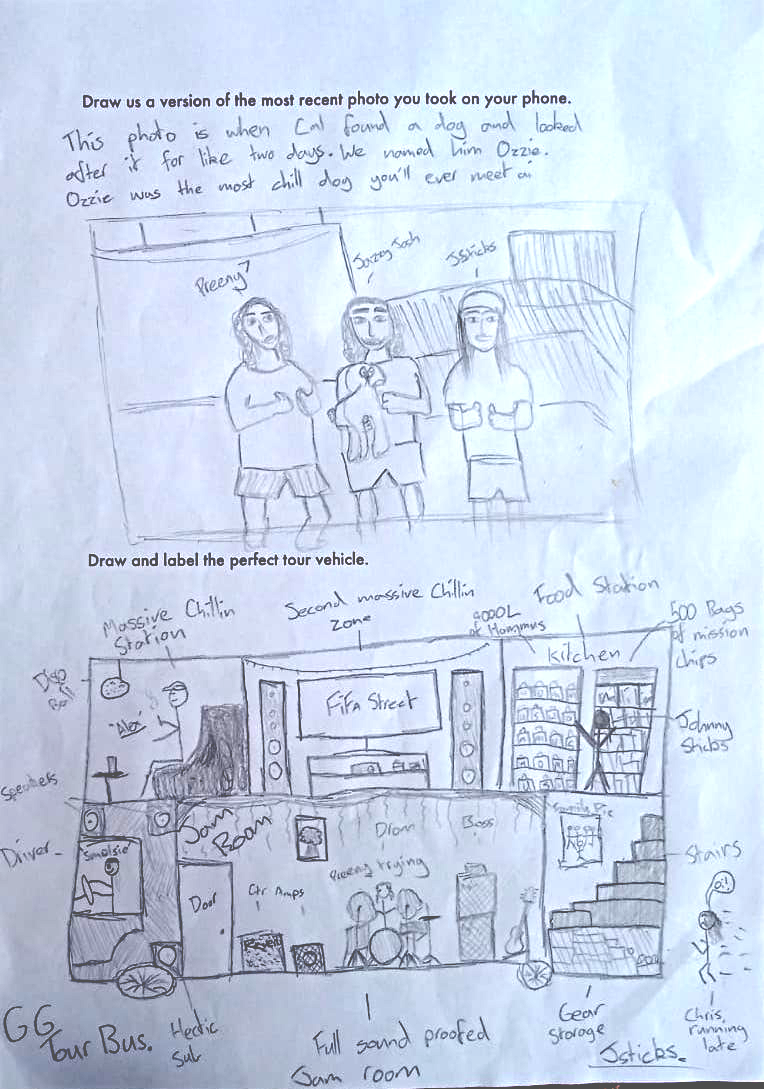 Draw us a version of the most recent photo you took on your phone.
This photo is when Cal found a dog and looked
after it for like two days. We named him Ozzie.
Ozzie was the most chill dog you'll ever meet
Preeny
Jazzy Josh
JSticks
Draw and label the perfect tour vehicle.
Massive Chillin
Station
Second massive Chillin
Zone
9000L
of Hommus
Food Station
500 Bags
of mission
chips
Kitchen
Disco
Ball
"Alex"
FiFa Street
Johnny
Sticks
Speakers
Jam
Room
Drom
Bass
Driver
Door
Gtr Amps
Preeny trying
Stairs
oi!
GG
Tour Bus.
Hectic
Sub
Full sound proofed
Jam room
Gear
Storage
Chris
running
late
Jsticks.